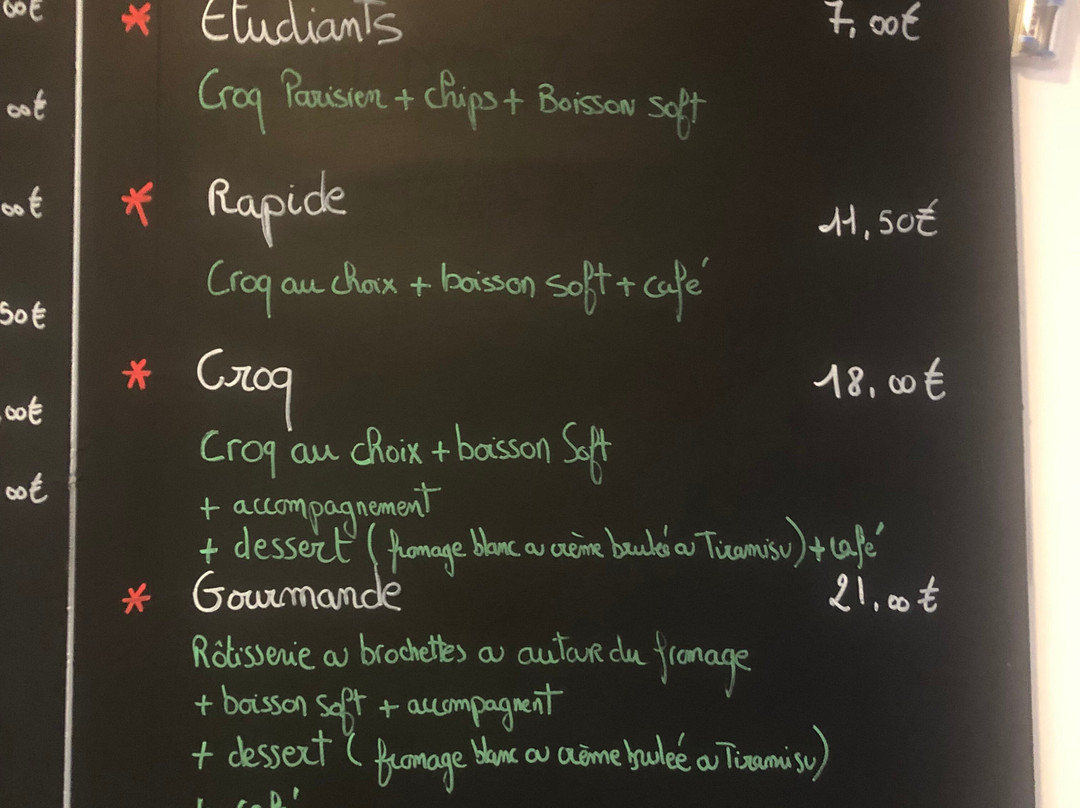 00€
* Etudiants 7,00€
Croq Parisien + chips + Boisson soft
00€
00€
* Rapide 11,50€
Croq au choix + boisson soft + café
50€
* Croq 18,00€
,00€
Croq au choix + boisson Soft
00€
+ accompagnement
+ dessert (fromage blanc ou crème brulée ou Tiramisu) + café
* Gourmande 21,00€
Rôtisserie ou brochettes ou autour du fromage
+ boisson soft + accompagnent
+ dessert (fromage blanc ou crème brulée ou Tiramisu)
+ café